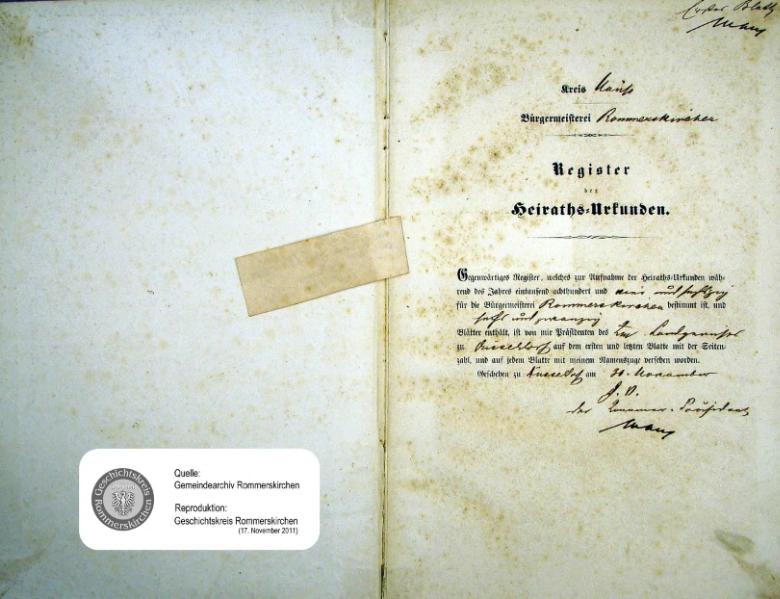 Erstes Blatt
Kreis Neuß
Bürgermeisterei Rommerskirchen
Register
der
Heiraths-Urkunden.
Gegenwärtiges Register, welches zur Aufnahme der Heiraths-Urkunden wäh-
rend des Jahres eintausend achthundert und und sechszig
für die Bürgermeisterei Rommerskirchen bestimmt ist, und
sechs und zwanzig
Blätter enthält, ist von mir Präsidenten des Landgerichts
zu Düsseldorf auf dem ersten und letzten Blatte mit der Seiten-
zahl, und auf jedem Blatte mit meinem Namenszuge versehen worden.
Geschehen zu Düsseldorf am 30. November
der Kammer-Präsident
Quelle:
Gemeindearchiv Rommerskirchen
Reproduktion:
Geschichtskreis Rommerskirchen
(17. November 2011)
Geschichtskreis
Rommerskirchen